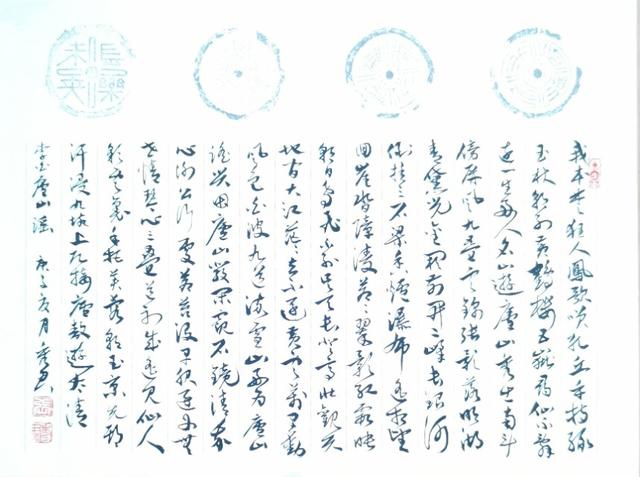 我本楚狂人鳳歌笑孔丘手持綠
玉杖朝別黃鶴樓五嶽尋仙不辭
遠一生好入名山遊廬山秀出南斗
傍屏風九疊雲錦張影落明湖
青黛光金闕前開二峰長銀河
倒掛三石梁香爐瀑布遙相望
回崖沓嶂凌蒼蒼翠影紅霞映
朝日鳥飛不到吳天長登高壯觀天
地間大江茫茫去不還黃雲萬里動
風色白波九道流雪山好為廬山
謠興因廬山發閑窺石鏡清我
心謝公行處蒼苔沒早服還丹無
世情琴心三疊道初成遙見仙人
彩雲裏手把芙蓉朝玉京先期
汗漫九垓上願接盧敖遊太清
李白廬山謠 庚子亥月